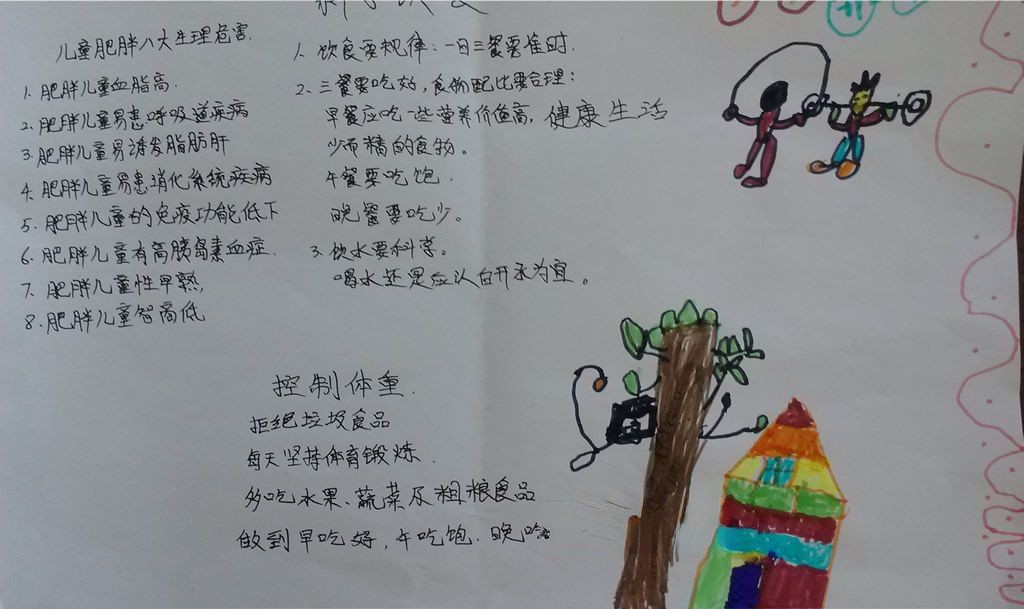 儿童肥胖八大生理危害.
1. 肥胖儿童血脂高.
2. 肥胖儿童易患呼吸道疾病
3. 肥胖儿童易诱发脂肪肝
4. 肥胖儿童易患消化系统疾病
5. 肥胖儿童的免疫功能低下
6. 肥胖儿童有高胰岛素血症.
7. 肥胖儿童性早熟,
8. 肥胖儿童智商低
1. 饮食要规律:一日三餐要准时.
2. 三餐要吃好,食物配比要合理:
早餐应吃一些营养价值高,
少而精的食物。
午餐要吃饱.
晚餐要吃少。
3. 饮水要科学。
喝水还是应以白开水为宜。
健康生活
控制体重.
拒绝垃圾食品
每天坚持体育锻炼.
多吃水果、蔬菜及粗粮食品
做到早吃好,午吃饱.晚吃